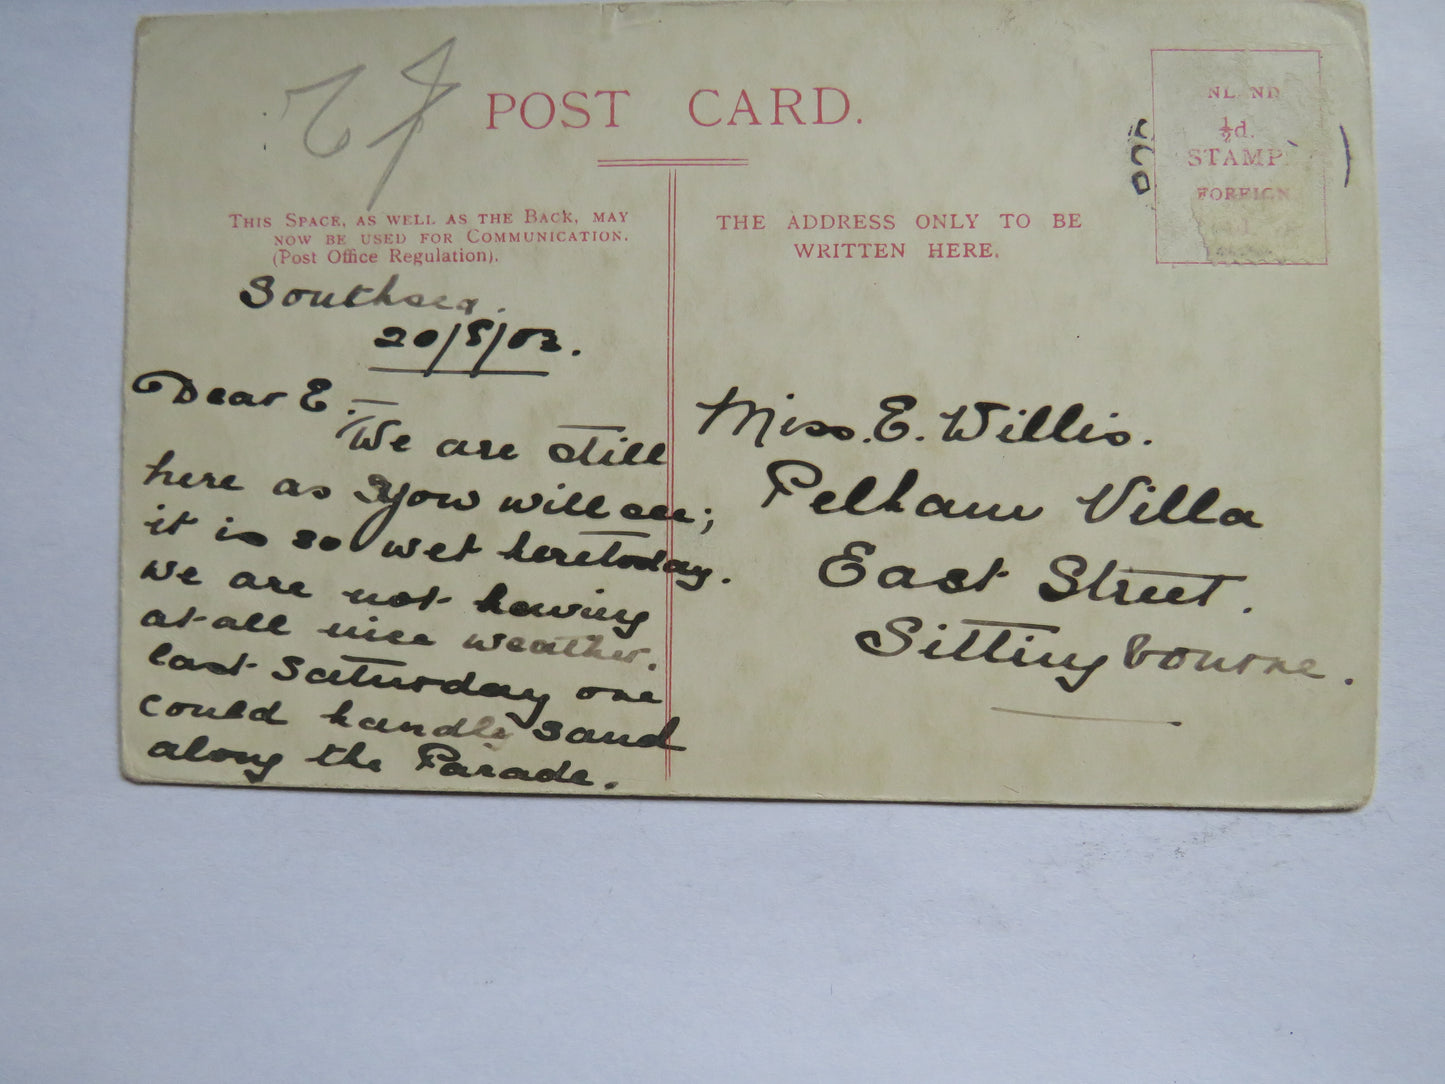 POST CARD.
THIS SPACE, AS WELL AS THE BACK, MAY
NOW BE USED FOR COMMUNICATION.
(Post Office Regulation).
Southsea.
20/8/03.
Dear E.
We are still
here as you will see;
it is so wet here today.
We are not having
at all nice weather.
last Saturday one
could handly sand
along the Parade.
THE ADDRESS ONLY TO BE
WRITTEN HERE.
NL ND
½d.
STAMP.
FOREIGN
Miss. E. Willis.
Pelham Villa
East Street.
Sittingbourne.